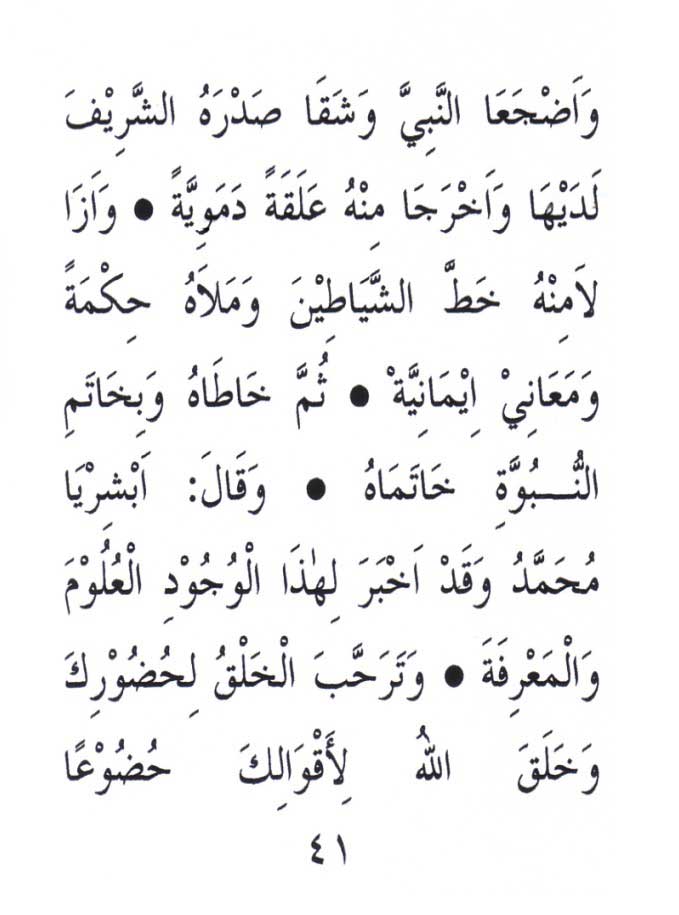 وَاَضْجَعَا النَّبِيَّ وَشَقَا صَدْرَهُ الشَّرِيْفَ
لَدَيْهَا وَاَخْرَجَا مِنْهُ عَلَقَةً دَمَوِيَّةً ● وَاَزَا
لاَمِنْهُ خَطَّ الشَّيَاطِيْنَ وَمَلاَهُ حِكْمَةً
وَمَعَانِيْ اِيْمَانِيَّةْ ● ثُمَّ خَاطَاهُ وَبِخَاتَمِ
النُّـــبُوَّةِ خَاتَمَاهُ ● وَقَالَ: اَبْشِرْيَا
مُحَمَّدُ وَقَدْ اَخْبَرَ لِهٰذَا الْوُجُوْدِ الْعُلُوْمَ
وَالْمَعْرِفَةَ ● وَتَرَحَّبَ الْخَلْقُ لِحُضُوْرِكَ
وَخَلَقَ اللهُ لِأَقْوَالِكَ حُضُوْعًا
٤١